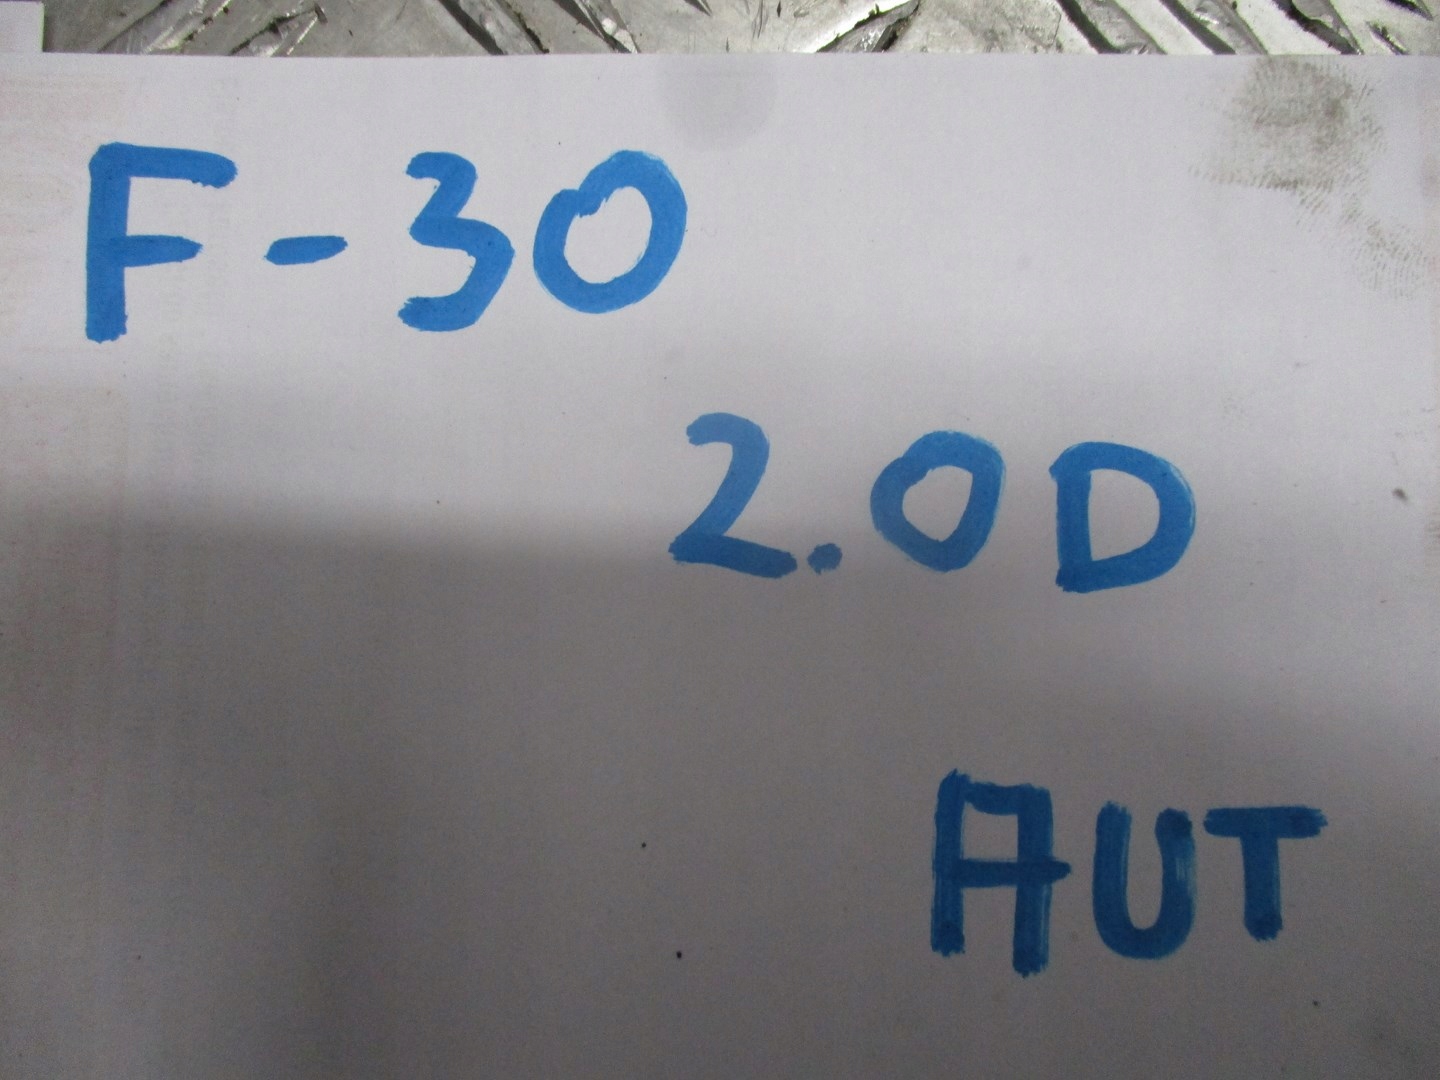 F-30
2.0D
AUT